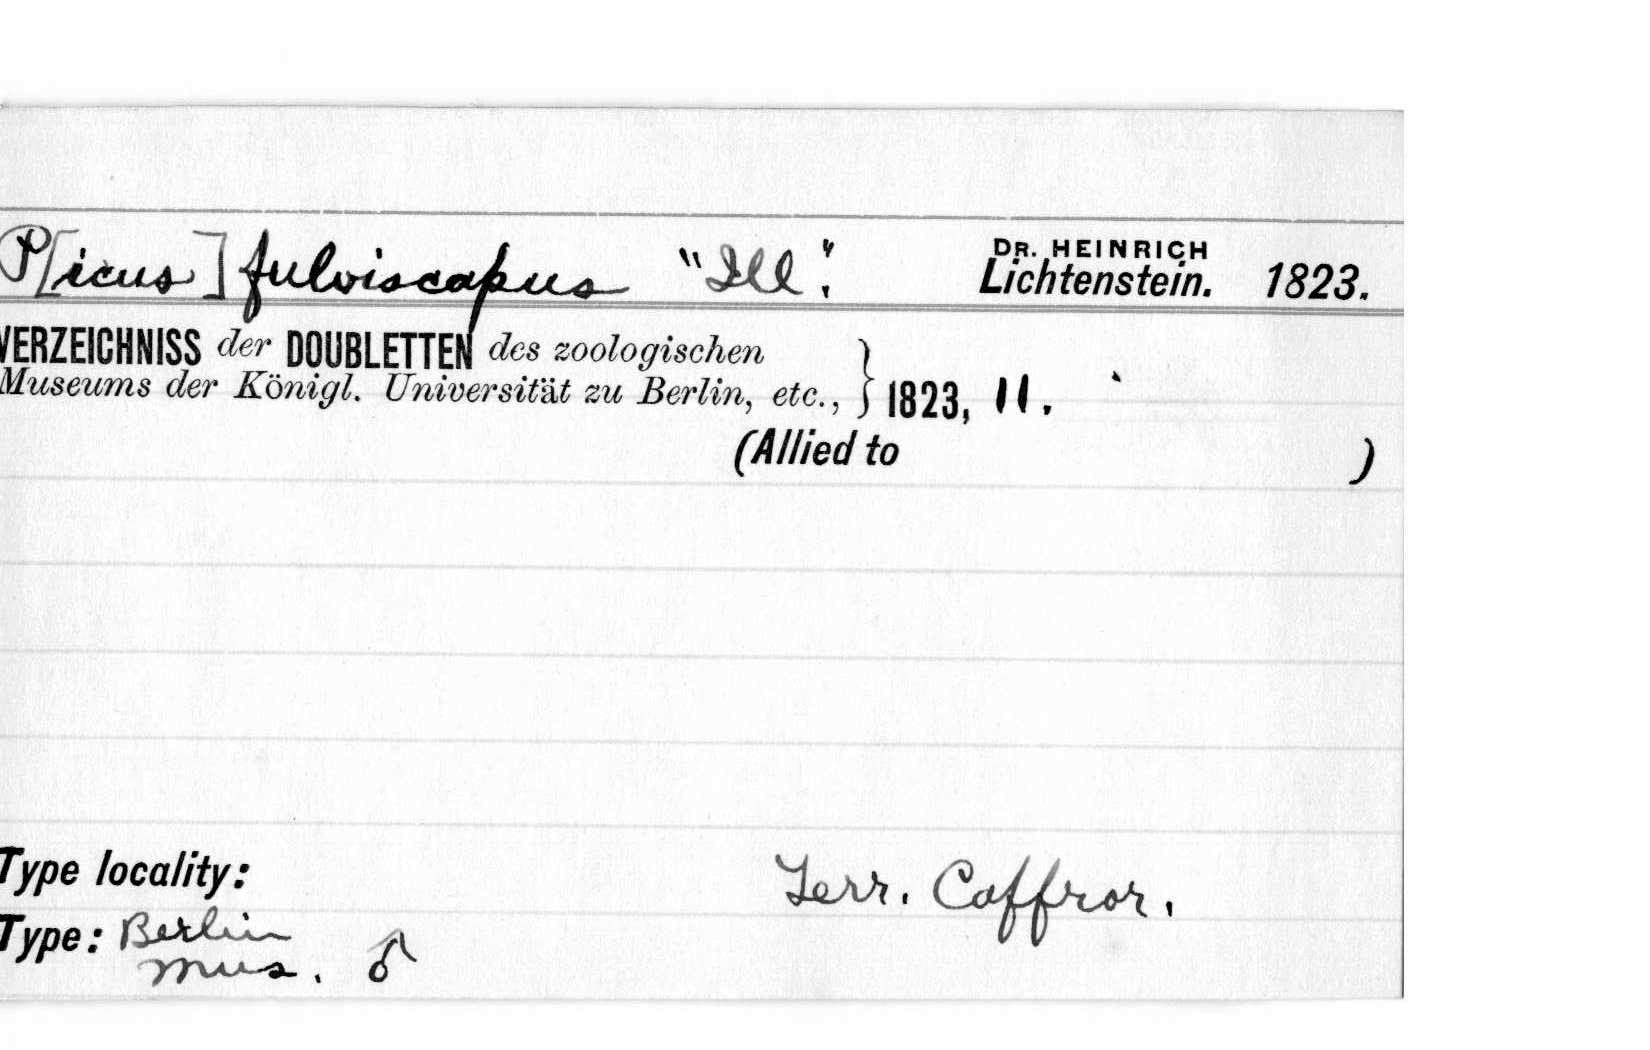 P[icus] fulviscapus "Ill". DR. HEINRICH Lichtenstein. 1823.
VERZEICHNISS der DOUBLETTEN des zoologischen
Museums der Königl. Universität zu Berlin, etc., } 1823, 11.
(Allied to )
Type locality: Terr. Caffror.
Type: Berlin
Mus. ♂